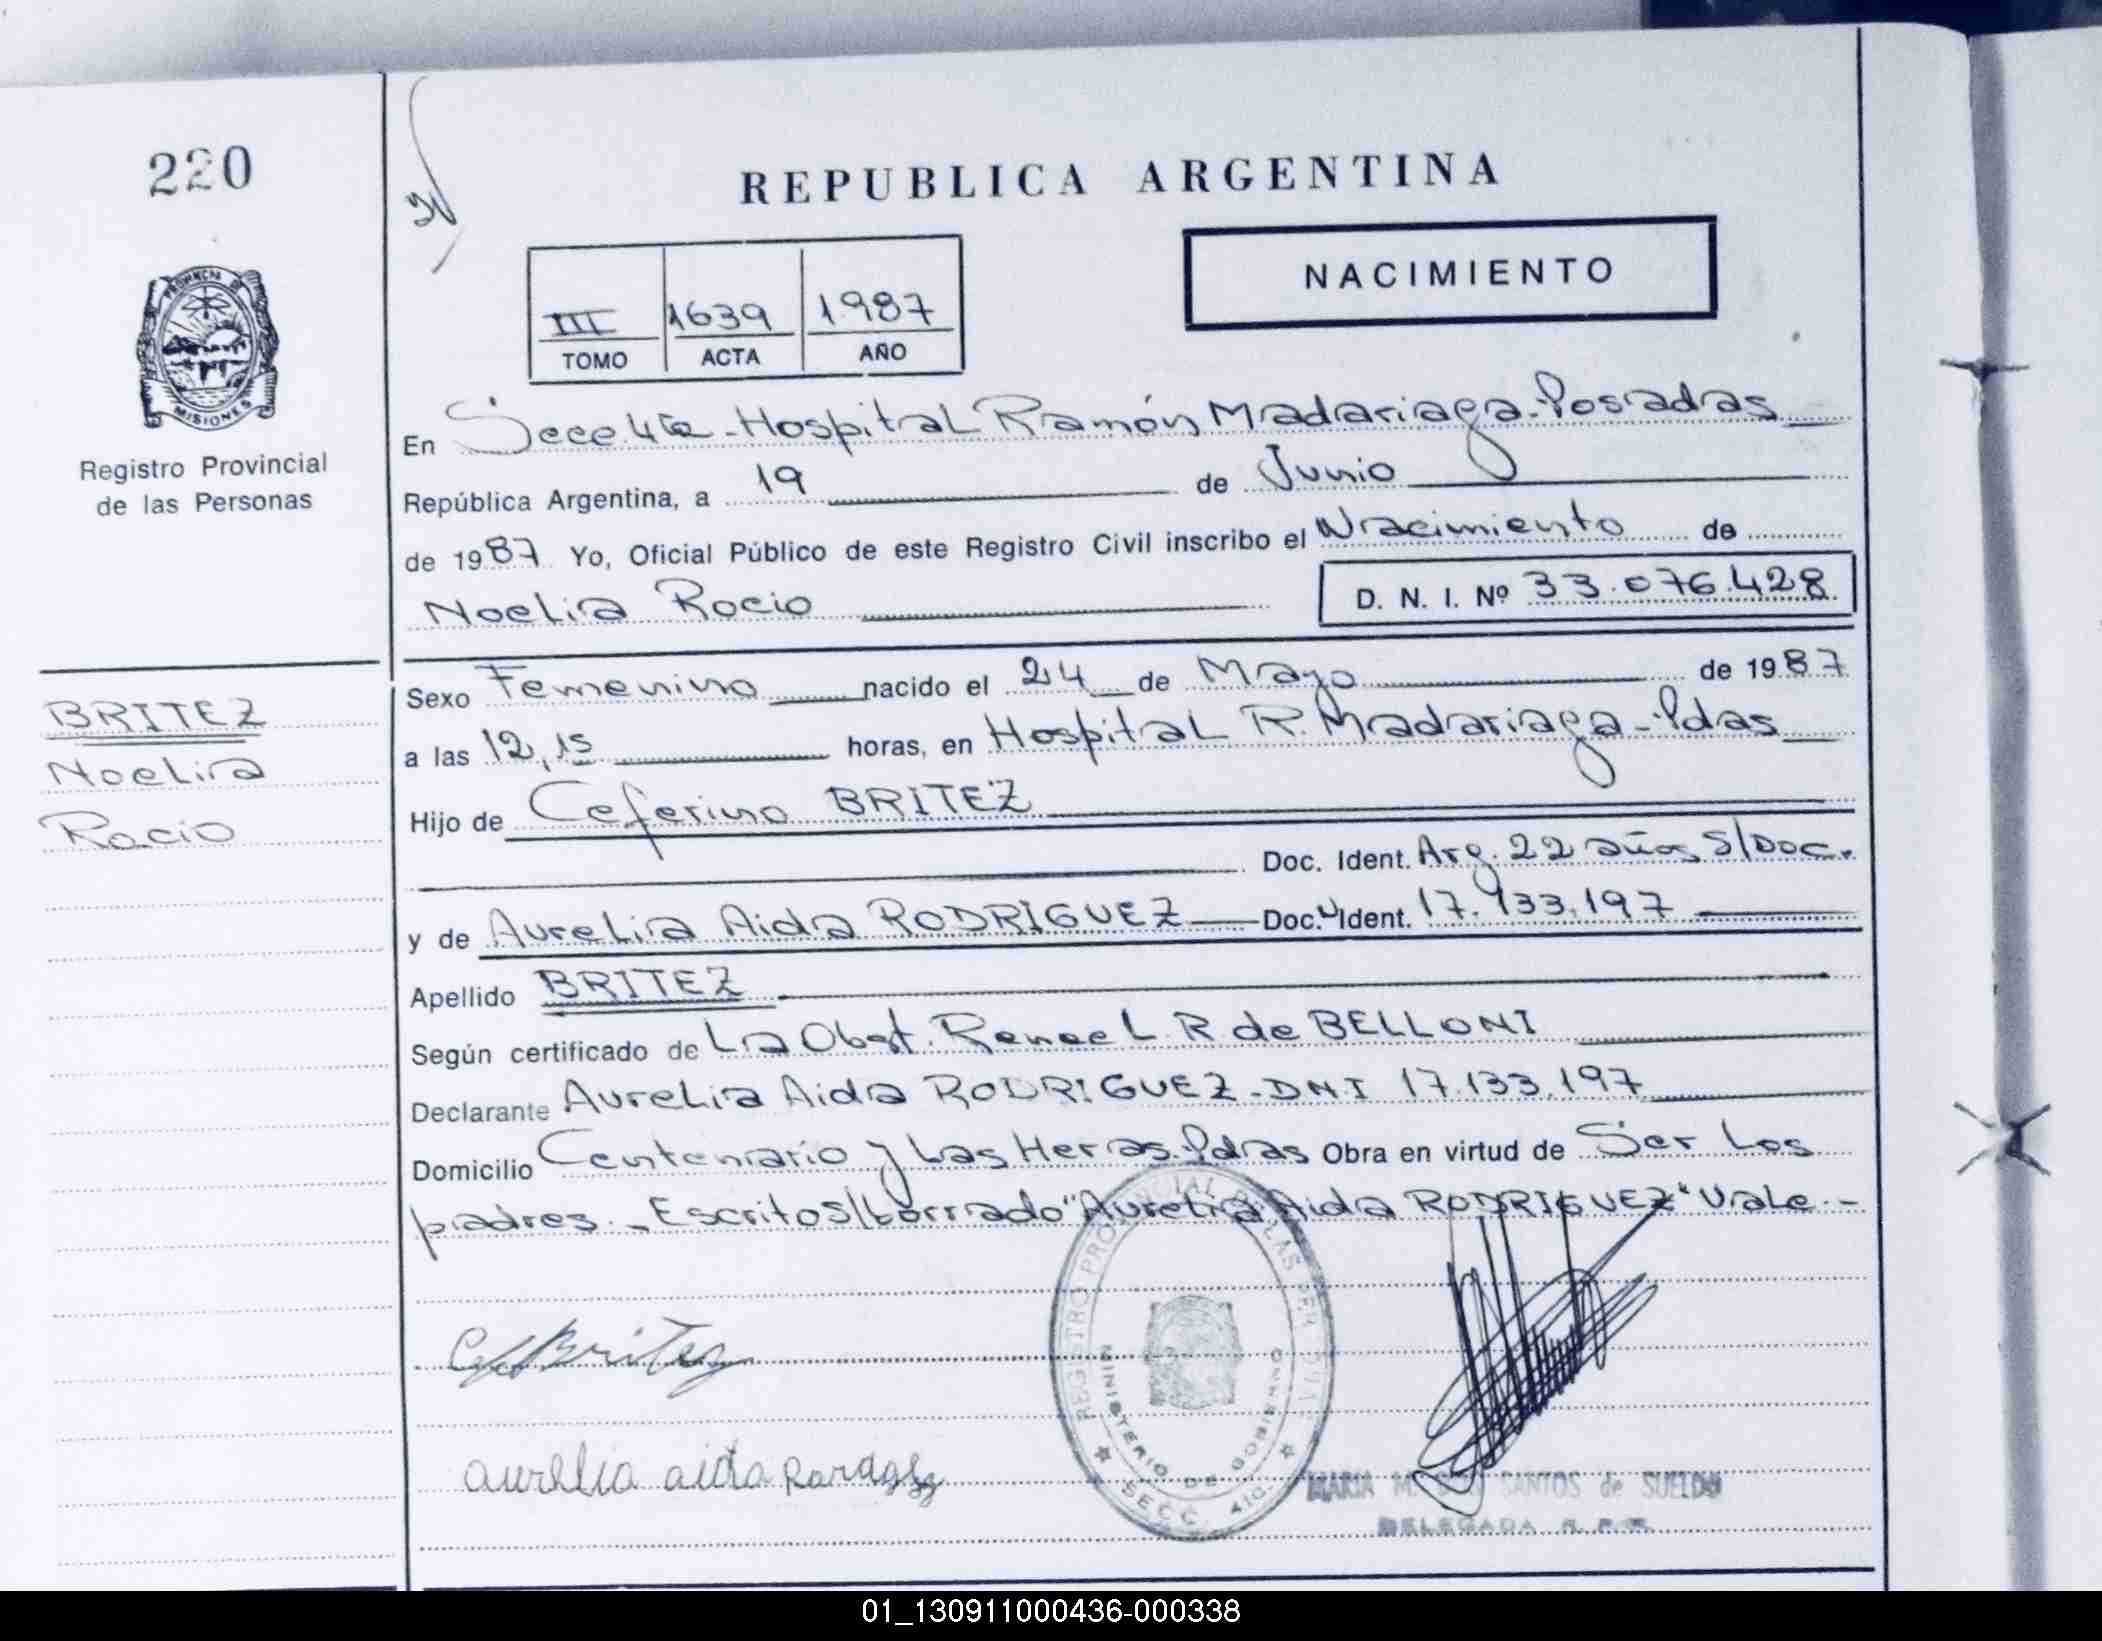 220
REPUBLICA ARGENTINA
NACIMIENTO
III 1639 1987
TOMO ACTA AÑO
PROVINCIA DE
MISIONES
Registro Provincial
de las Personas
En Secc 4ta - Hospital Ramón Madariaga - Posadas
República Argentina, a 19 de Junio
de 1987 Yo, Oficial Público de este Registro Civil inscribo el Nacimiento de
Noelia Rocio D. N. I. Nº 33.076.428
BRITEZ
Noelia
Rocio
Sexo Femenino nacido el 24 de Mayo de 1987
a las 12,15 horas, en Hospital R. Madariaga - Pdas
Hijo de Ceferino BRITEZ
Doc. Ident. Arg. 22 años S/Doc.
y de Aurelia Aida RODRIGUEZ Doc. Ident. 17.133.197
Apellido BRITEZ
Según certificado de La Obst. Renee L. R. de BELLONI
Declarante Aurelia Aida RODRIGUEZ - DNI 17.133.197
Domicilio Centenario y Las Heras. Pdas Obra en virtud de Ser Los
padres. - Escritos/borrado "Aurelia Aida RODRIGUEZ" Vale. -
REGISTRO PROVINCIAL DE LAS PERSONAS
MINISTERIO DE GOBIERNO
SECC. 4ta.
Cef Britez
aurelia aida
MARIA SANTOS de SUELDO
DELEGADA R. P. P.
01_130911000436-000338